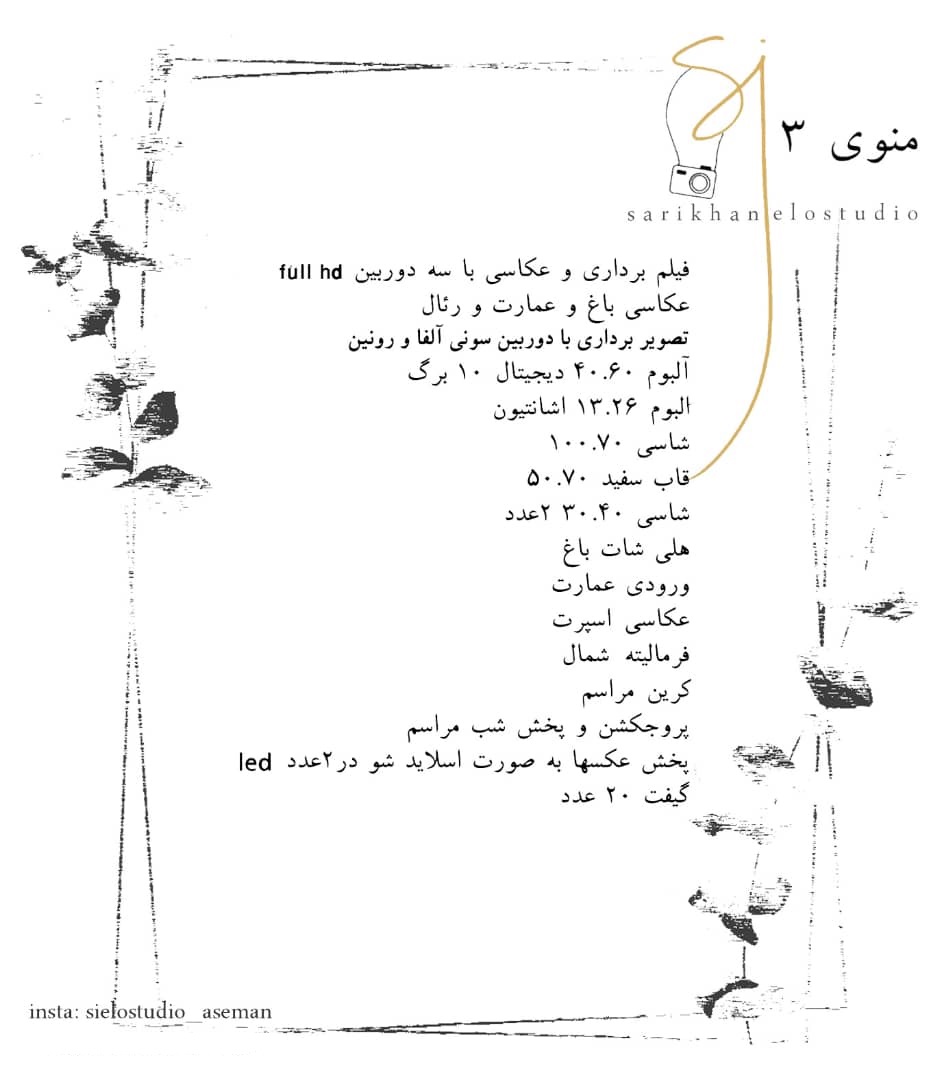 منوی ۳
sarikhanielostudio
فیلم برداری و عکاسی با سه دوربین full hd
عکاسی باغ و عمارت و رئال
تصویر برداری با دوربین سونی آلفا و رونین
آلبوم ۴۰.۶۰ دیجیتال ۱۰ برگ
البوم ۱۳.۲۶ اشانتیون
شاسی ۱۰۰.۷۰
قاب سفید ۵۰.۷۰
شاسی ۳۰.۴۰ ۲عدد
هلی شات باغ
ورودی عمارت
عکاسی اسپرت
فرمالیته شمال
کرین مراسم
پروجکشن و پخش شب مراسم
پخش عکسها به صورت اسلاید شو در۲عدد led
گیفت ۲۰ عدد
insta: sielostudio_aseman